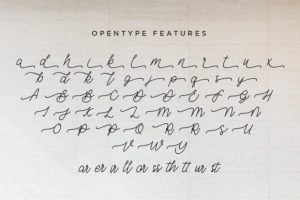 OPENTYPE FEATURES
a d h i k l m n r t u x
b d k l g j p q s y
A B B D D E F G H
I J K L L M M N N
O P P Q R R S U
V W Y
ar er ir ll or ss th tt ur st